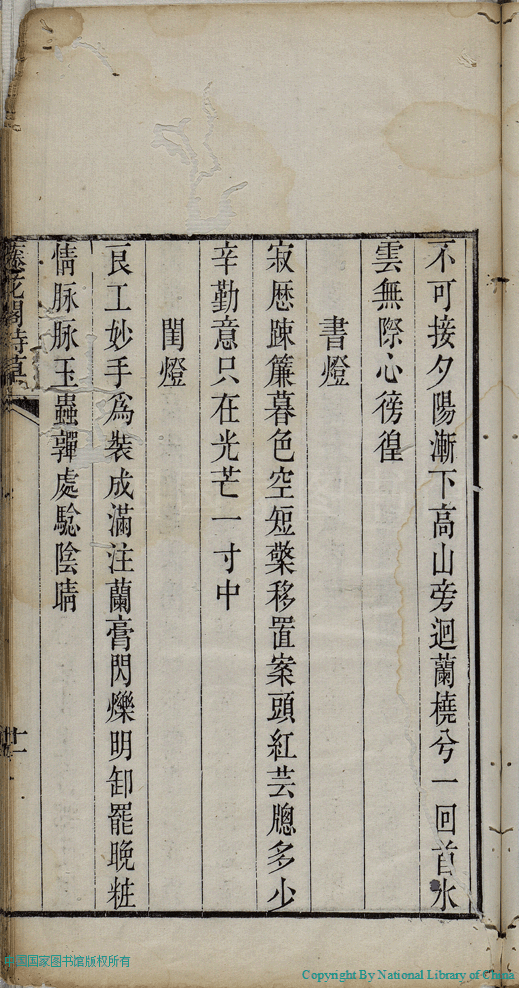 不可接夕陽漸下高山旁迴蘭橈兮一回首水
雲無際心徬徨
書燈
寂厯踈簾暮色空短檠移置案頭紅芸牕多少
辛勤意只在光芒一寸中
閨燈
良工妙手爲裝成滿注蘭膏閃爍明卸罷晚粧
情脉脉玉蟲嚲處騐陰晴
花閣詩草
十一
中国国家图书馆版权所有
Copyright By National Library of China